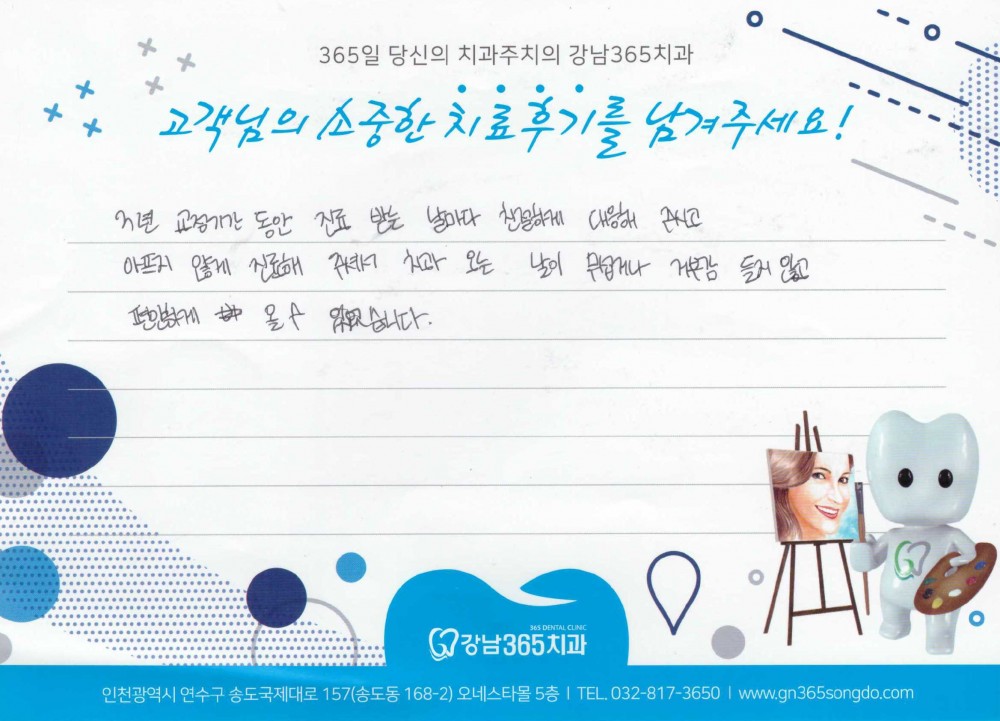 365일 당신의 치과주치의 강남365치과
고객님의 소중한 치료후기를 남겨주세요!
지년 교정기간 동안 진료 받는 날마다 친절하게 대응해 주시고
아프지 않게 진료해 주셔서 치과 오는 날이 무섭거나 거부감 들지 않고
편안하게 올 수 있었습니다.
365 DENTAL CLINIC
강남365치과
인천광역시 연수구 송도국제대로 157(송도동 168-2) 오네스타몰 5층 | TEL. 032-817-3650 | www.gn365songdo.com